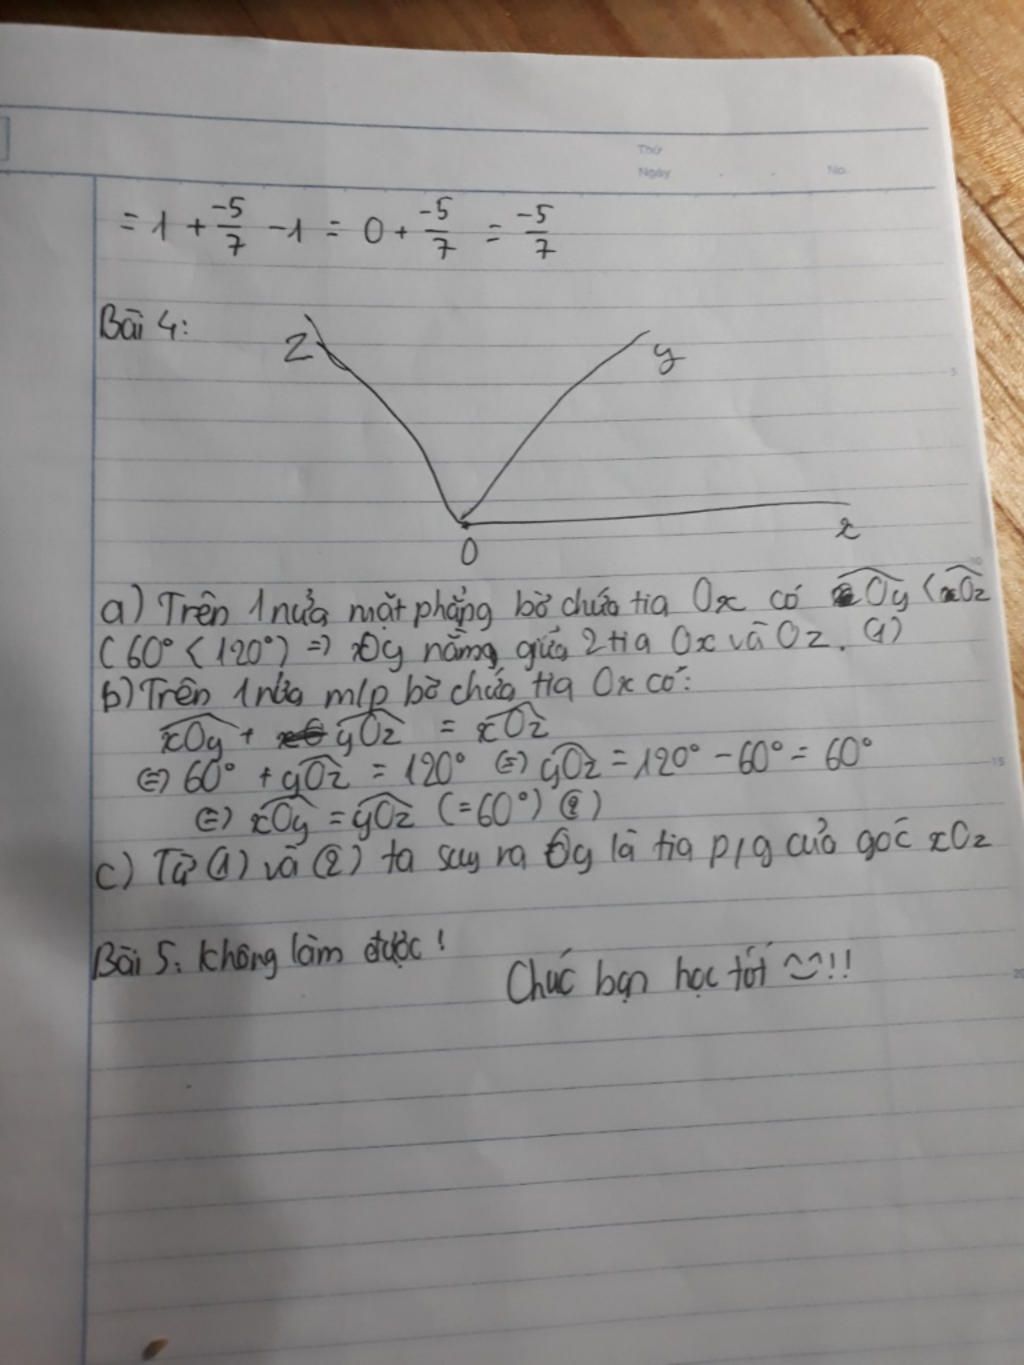 Thứ
Ngày . . No.
= 1 + \frac{-5}{7} - 1 = 0 + \frac{-5}{7} = \frac{-5}{7}
Bài 4:
z
y
O
x
a) Trên 1 nửa mặt phẳng bờ chứa tia Ox có \widehat{xOy} < \widehat{xOz}
(60° < 120°) => Oy nằm giữa 2 tia Ox và Oz. (1)
b) Trên 1 nửa m/p bờ chứa tia Ox có:
\widehat{xOy} + \widehat{yOz} = \widehat{xOz}
<=> 60° + \widehat{yOz} = 120° <=> \widehat{yOz} = 120° - 60° = 60°
<=> \widehat{xOy} = \widehat{yOz} (= 60°) (2)
c) Từ (1) và (2) ta suy ra Oy là tia p/g của góc xOz
Bài 5: Không làm được!
Chúc bạn học tốt ^^!!
5
10
15
20